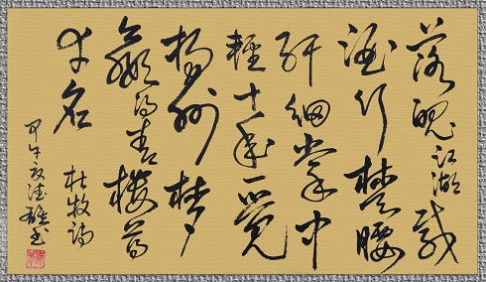 落魄江湖载
酒行楚腰
纤細掌中
輕十年一覺
楊州梦
赢得青楼薄
幸名
杜牧詩
甲午夏雄书